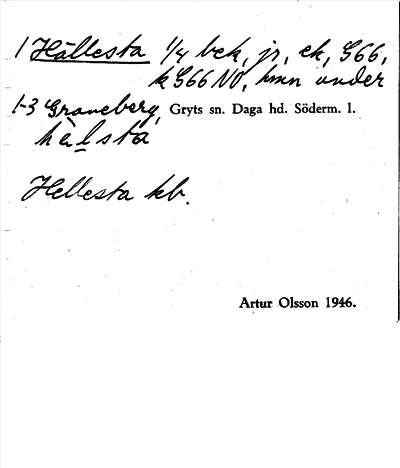 1 Hällesta 1/4 bek, jr, ek, G66,
k G66 NO, hmn under
1-3 Graneberg, Gryts sn. Daga hd. Söderm. l.
hälsta
Hellesta kb.
Artur Olsson 1946.